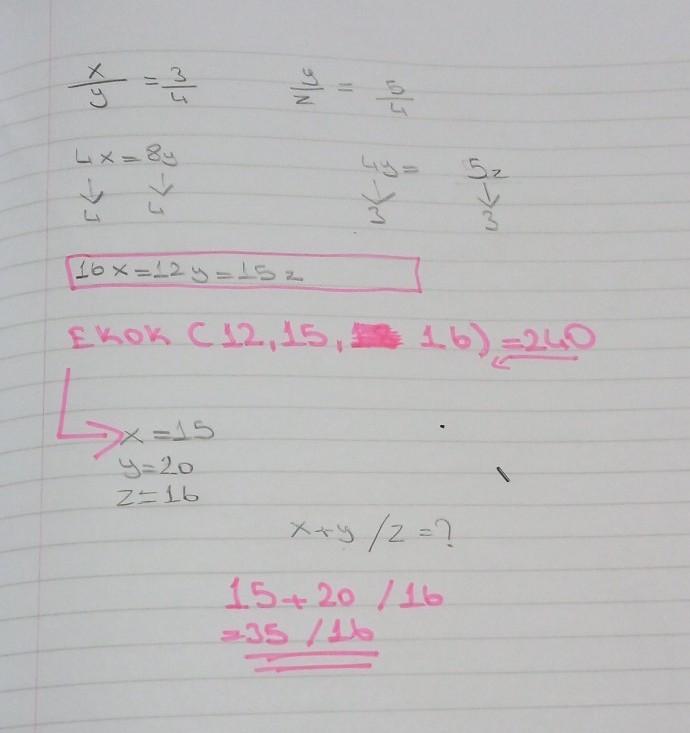 x/y = 3/4 y/z = 5/4
4x = 8y 4y = 5z
↓ ↓ ↓ ↓
4 4 3 3
16x = 12y = 15z
EKOK (12, 15, 16) = 240
x = 15
y = 20
z = 16
x + y / z = ?
15 + 20 / 16
= 35 / 16